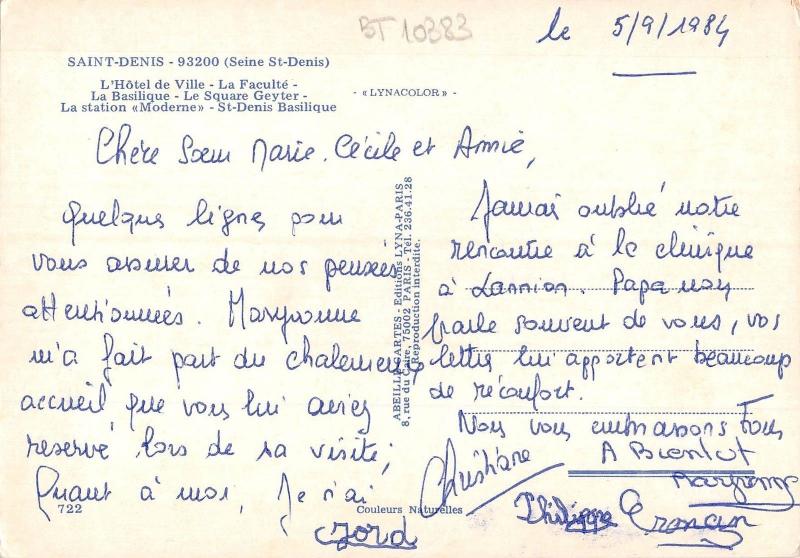 BT 10383
le 5/9/1984
SAINT-DENIS - 93200 (Seine St-Denis)
L'Hôtel de Ville - La Faculté -
La Basilique - Le Square Geyter -
La station «Moderne» - St-Denis Basilique
- «LYNACOLOR» -
Chère Sœur Marie-Cécile et Annie,
Quelques lignes pour
vous assurer de nos pensées
attentionnées. Maryvonne
m'a fait part du chaleureux
accueil que vous lui aviez
réservé lors de sa visite;
Quant à moi, Je n'ai
Jamais oublié notre
rencontre à la clinique
à Lannion. Papa
parle souvent de vous, vos
lettres lui apportent beaucoup
de réconfort.
Nous vous embrassons Tous
A Bientot
Christiane
Maryvonne
Philippe
Ronan
722
Couleurs Naturelles
ABEILLE-CARTES - Editions LYNA-PARIS
8, rue du Caire, 75002 PARIS - Tél. 236.41.28
Reproduction interdite.